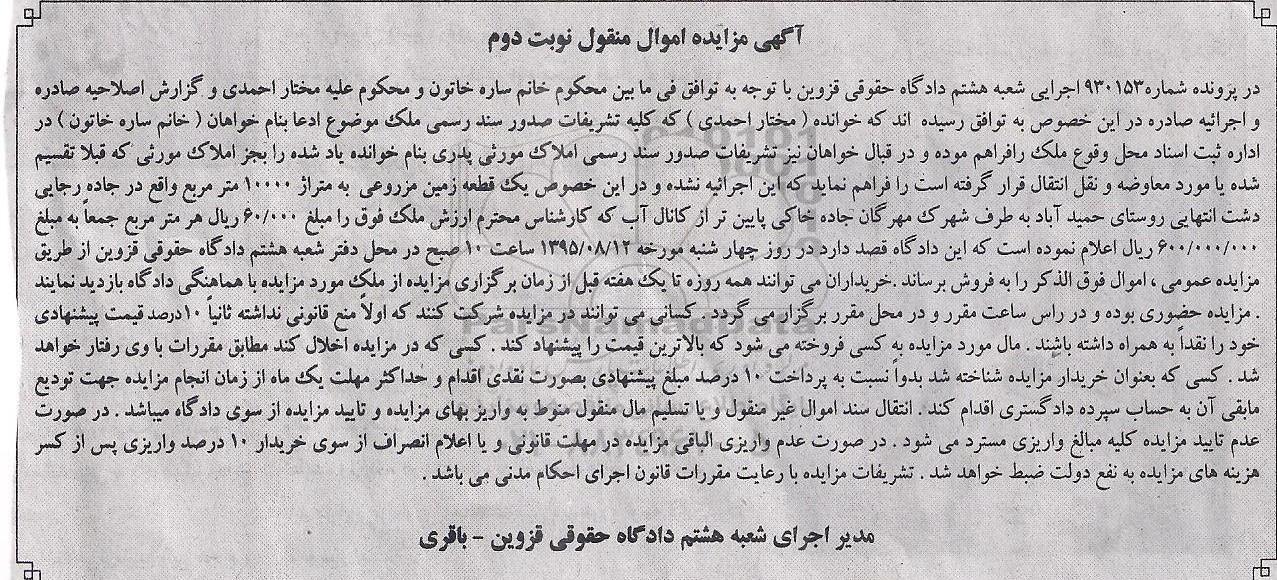 آگهی مزایده اموال منقول نوبت دوم
در پرونده شماره۹۳۰۱۵۳ اجرایی شعبه هشتم دادگاه حقوقی قزوین با توجه به توافق فی ما بین محکوم خانم ساره خاتون و محکوم علیه مختار احمدی و گزارش اصلاحیه صادره
و اجرائیه صادره در این خصوص به توافق رسیده اند که خوانده ( مختار احمدی ) که کلیه تشریفات صدور سند رسمی ملک موضوع ادعا بنام خواهان ( خانم ساره خاتون ) در
اداره ثبت اسناد محل وقوع ملک رافراهم موده و در قبال خواهان نیز تشریفات صدور سند رسمی املاک مورثی پدری بنام خوانده یاد شده را بجز املاک مورثی که قبلا تقسیم
شده یا مورد معاوضه و نقل انتقال قرار گرفته است را فراهم نماید که این اجرائیه نشده و در این خصوص یک قطعه زمین مزروعی به متراژ ۱۰۰۰۰ متر مربع واقع در جاده رجایی
دشت انتهایی روستای حمید آباد به طرف شهرک مهرگان جاده خاکی پایین تر از کانال آب که کارشناس محترم ارزش ملک فوق را مبلغ ۶۰/۰۰۰ ریال هر متر مربع جمعاً به مبلغ
۶۰۰/۰۰۰/۰۰۰ ریال اعلام نموده است که این دادگاه قصد دارد در روز چهار شنبه مورخه ۱۳۹۵/۰۸/۱۲ ساعت ۱۰ صبح در محل دفتر شعبه هشتم دادگاه حقوقی قزوین از طریق
مزایده عمومی ، اموال فوق الذکر را به فروش برساند .خریداران می توانند همه روزه تا یک هفته قبل از زمان برگزاری مزایده از ملک مورد مزایده با هماهنگی دادگاه بازدید نمایند
. مزایده حضوری بوده و در راس ساعت مقرر و در محل مقرر برگزار می گردد . کسانی می توانند در مزایده شرکت کنند که اولاً منع قانونی نداشته ثانیاً ۱۰درصد قیمت پیشنهادی
خود را نقداً به همراه داشته باشند . مال مورد مزایده به کسی فروخته می شود که بالاترین قیمت را پیشنهاد کند . کسی که در مزایده اخلال کند مطابق مقررات با وی رفتار خواهد
شد . کسی که بعنوان خریدار مزایده شناخته شد بدواً نسبت به پرداخت ۱۰ درصد مبلغ پیشنهادی بصورت نقدی اقدام و حداکثر مهلت یک ماه از زمان انجام مزایده جهت تودیع
مابقی آن به حساب سپرده دادگستری اقدام کند . انتقال سند اموال غیر منقول و یا تسلیم مال منقول منوط به واریز بهای مزایده و تایید مزایده از سوی دادگاه میباشد . در صورت
عدم تایید مزایده کلیه مبالغ واریزی مسترد می شود . در صورت عدم واریزی الباقی مزایده در مهلت قانونی و یا اعلام انصراف از سوی خریدار ۱۰ درصد واریزی پس از کسر
هزینه های مزایده به نفع دولت ضبط خواهد شد . تشریفات مزایده با رعایت مقررات قانون اجرای احکام مدنی می باشد .
مدیر اجرای شعبه هشتم دادگاه حقوقی قزوین - باقری
ParsNamadData